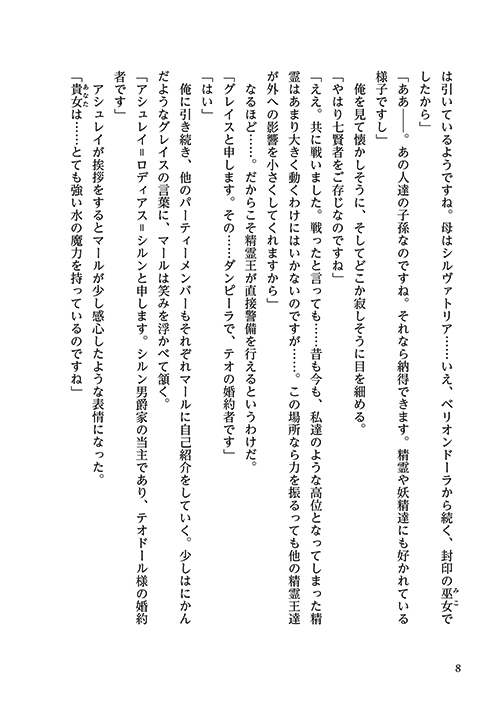 は引いているようですね。母はシルヴァトリア……いえ、ベリオンドーラから続く、封印の巫女で
したから」
「ああ――。あの人達の子孫なのですね。それなら納得できます。精霊や妖精達にも好かれている
様子ですし」
俺を見て懐かしそうに、そしてどこか寂しそうに目を細める。
「やはり七賢者をご存じなのですね」
「ええ。共に戦いました。戦ったと言っても……昔も今も、私達のような高位となってしまった精
霊はあまり大きく動くわけにはいかないのですが……。この場所なら力を振るっても他の精霊王達
が外への影響を小さくしてくれますから」
なるほど……。だからこそ精霊王が直接警備を行えるというわけだ。
「グレイスと申します。その……ダンピーラで、テオの婚約者です」
「はい」
俺に引き続き、他のパーティーメンバーもそれぞれマールに自己紹介をしていく。少しはにかん
だようなグレイスの言葉に、マールは笑みを浮かべて頷く。
「アシュレイ＝ロディアス＝シルンと申します。シルン男爵家の当主であり、テオドール様の婚約
者です」
アシュレイが挨拶をするとマールが少し感心したような表情になった。
「貴女は……とても強い水の魔力を持っているのですね」
みこ
あなた
8